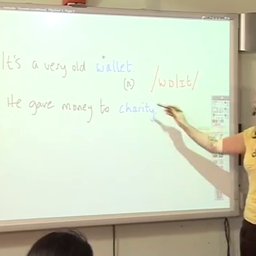 It's a very old wallet
(n) /wɒlɪt/
He gave money to charity